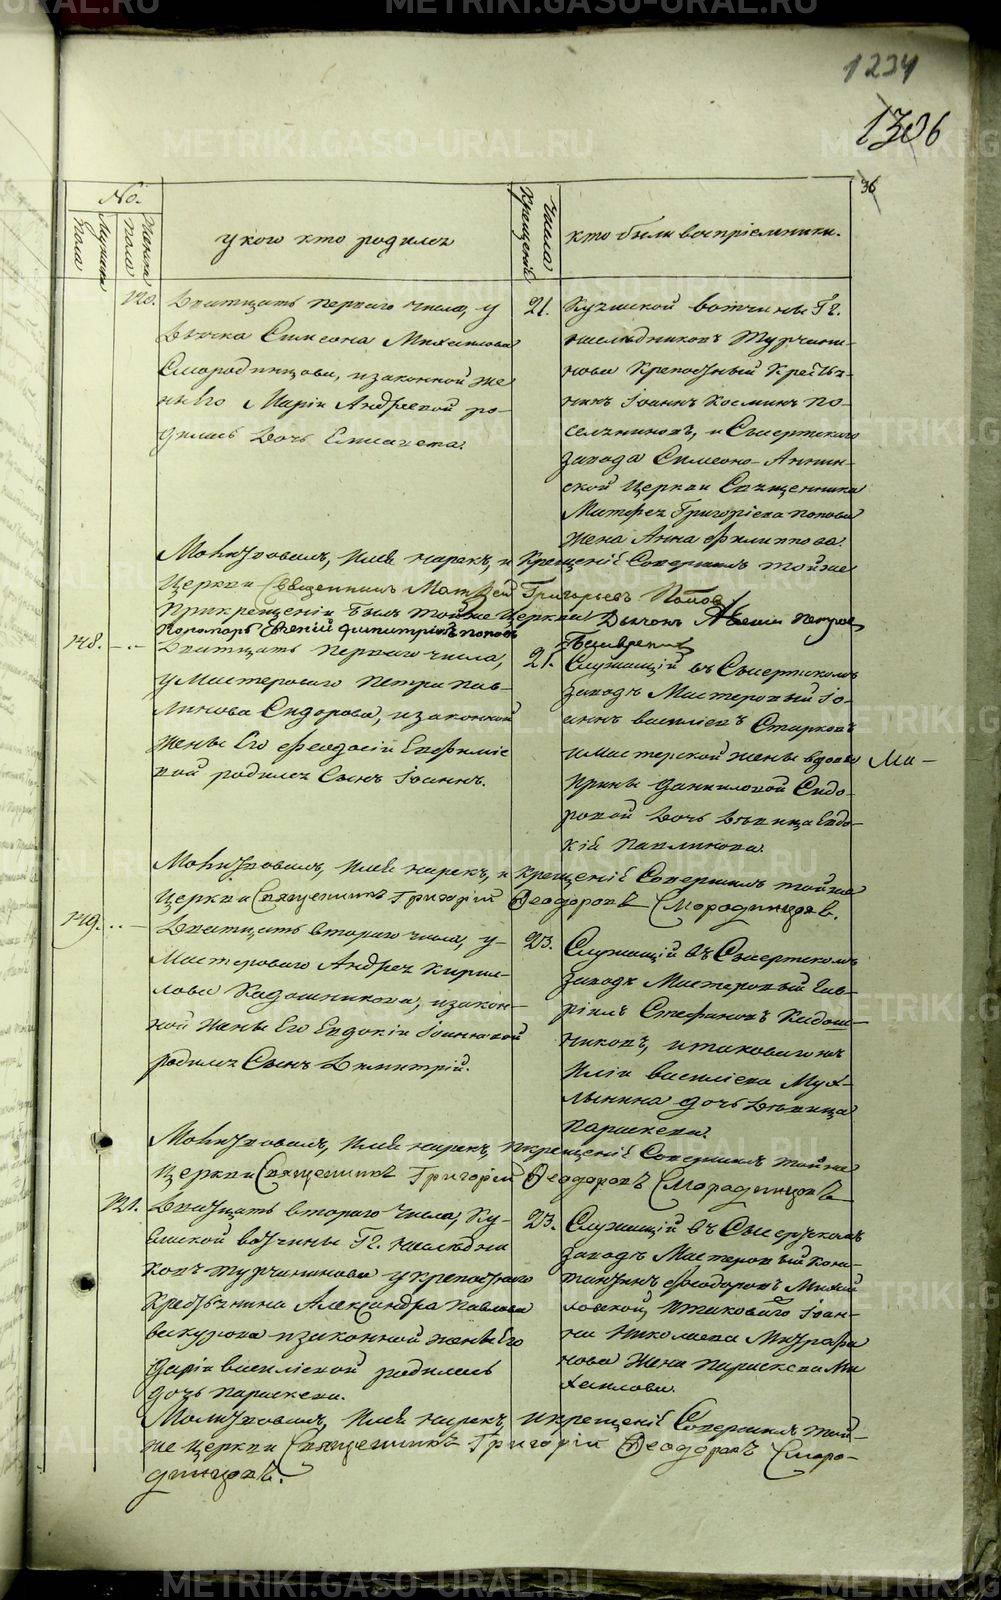 1234
1306
36
No.
Мужска пола
Женска пола
у кого кто родился
Числа Крещенiя
кто были воспрiемники.
120.
Дватцать перваго числа, у
Дьячка Симеона Михаилова
Смородинцова, и законной же
ны Его Марiи Андреевой ро-
дилась Дочь Елисавета.
21.
вотчины Гг.
наследниковъ Турчани-
нова Крепостный Кресть-
нинъ Iоаннъ Косминъ По-
и Сысертскаго
завода Симеоно-Аннин-
ской Церкви Священника
Матфея Григорiева Попова
Жена Анна Филиппова.
Молитвовалъ, Имя нарекъ, и Крещенiе Совершилъ тойже
Церкви Священникъ Матфей Григорьевъ Поповъ
При крещенiи былъ тойже Церкви Дьячокъ
Пономарь Евгенiй Димитрiевъ Поповъ
148.
Дватцать перваго числа,
у Мастероваго Петра Пав-
линова Сидорова, и законной
жены Его Феодосiи Евфимiе
вой родился Сынъ Iоаннъ.
21.
Служащiй въ Сысертскомъ
заводе Мастеровый Iо-
аннъ Василiевъ Старковъ
и Мастерской жены вдовы Ма-
Ирины Даниловой Сидо-
ровой Дочь Девица Евдо-
кiя Павлинова.
Молитвовалъ, Имя нарекъ, и крещенiе Совершилъ тойже
Церкви Священникъ Григорiй Ѳеодоровъ Смородинцовъ.
149.
Дватцать втораго числа, у
Мастероваго Андрея Кирил-
лова Кадошникова, и закон-
ной жены Его Евдокiи Iоанновой
родился Сынъ Димитрiй.
23.
Служащiй въ Сысертскомъ
заводе Мастеровый Гав-
рiилъ Стефановъ Кадош-
никовъ, и таковагожъ
Илiи Василiева Мух-
лынина дочь Девица
Параскева.
Молитвовалъ, Имя нарекъ, и крещенiе Совершилъ тойже
Церкви Священникъ Григорiй Ѳеодоровъ Смородинцовъ
121.
Дватцать втораго числа, Ку-
вотчины Гг. наследни
ковъ Турчанинова у крепостнаго
Крестьянина Александра Павлова
и законной жены Его
Дарiи Василiевой родилась
дочь Параскева.
23.
Служащiй въ Сысертскомъ
заводе Мастеровый Конс-
тантинъ Феодоровъ Михай
ловской, и таковаго Iоан-
на Николаева Митрофа
нова Жена Параскева Ми
хаилова.
Молитвовалъ, Имя нарекъ, и крещенiе Совершилъ той-
же Церкви Священникъ Григорiй Ѳеодоровъ Сморо-
динцовъ.
METRIKI.GASO-URAL.RU